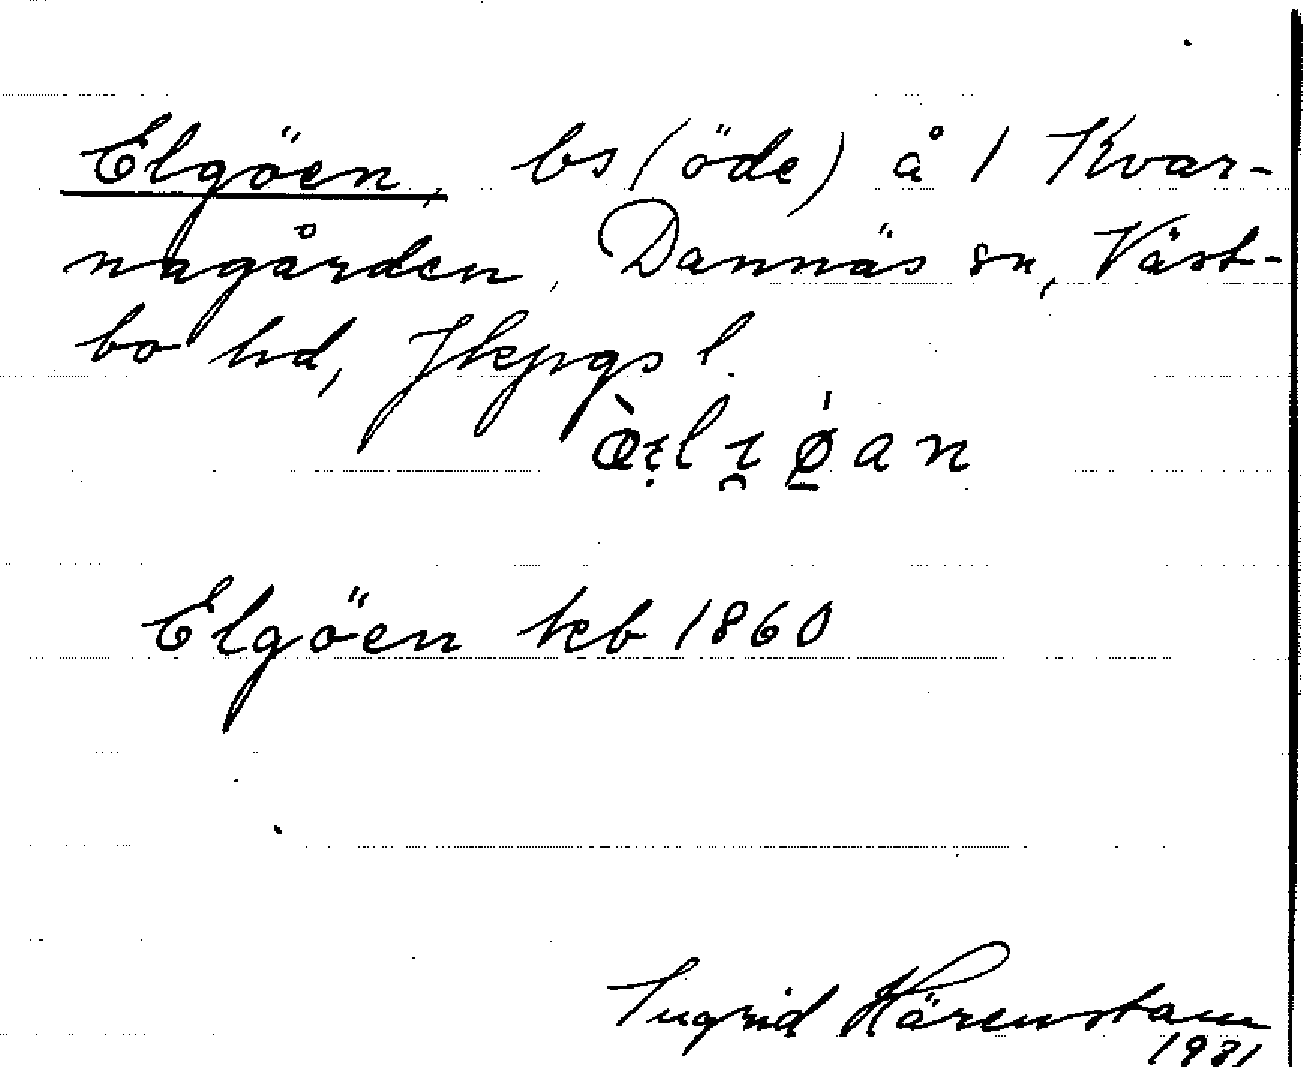 Elgöen, bs (öde) å 1 Kvar-
nagården, Dannäs sn, Väst-
bo hd, Jkpgs l.
Elgöen kb 1860
Ingrid Härenstam
1981